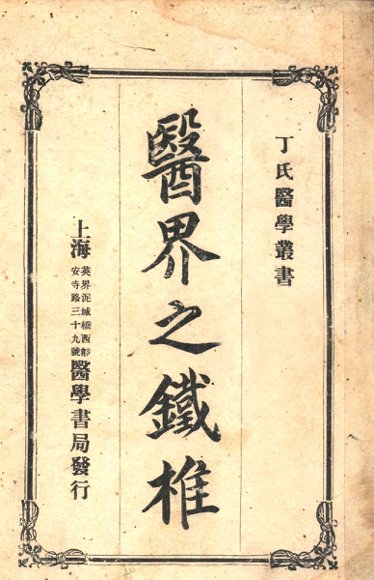 丁氏醫學叢書
醫界之鐵椎
上海英界泥城橋西靜安寺路三十九號醫學書局發行